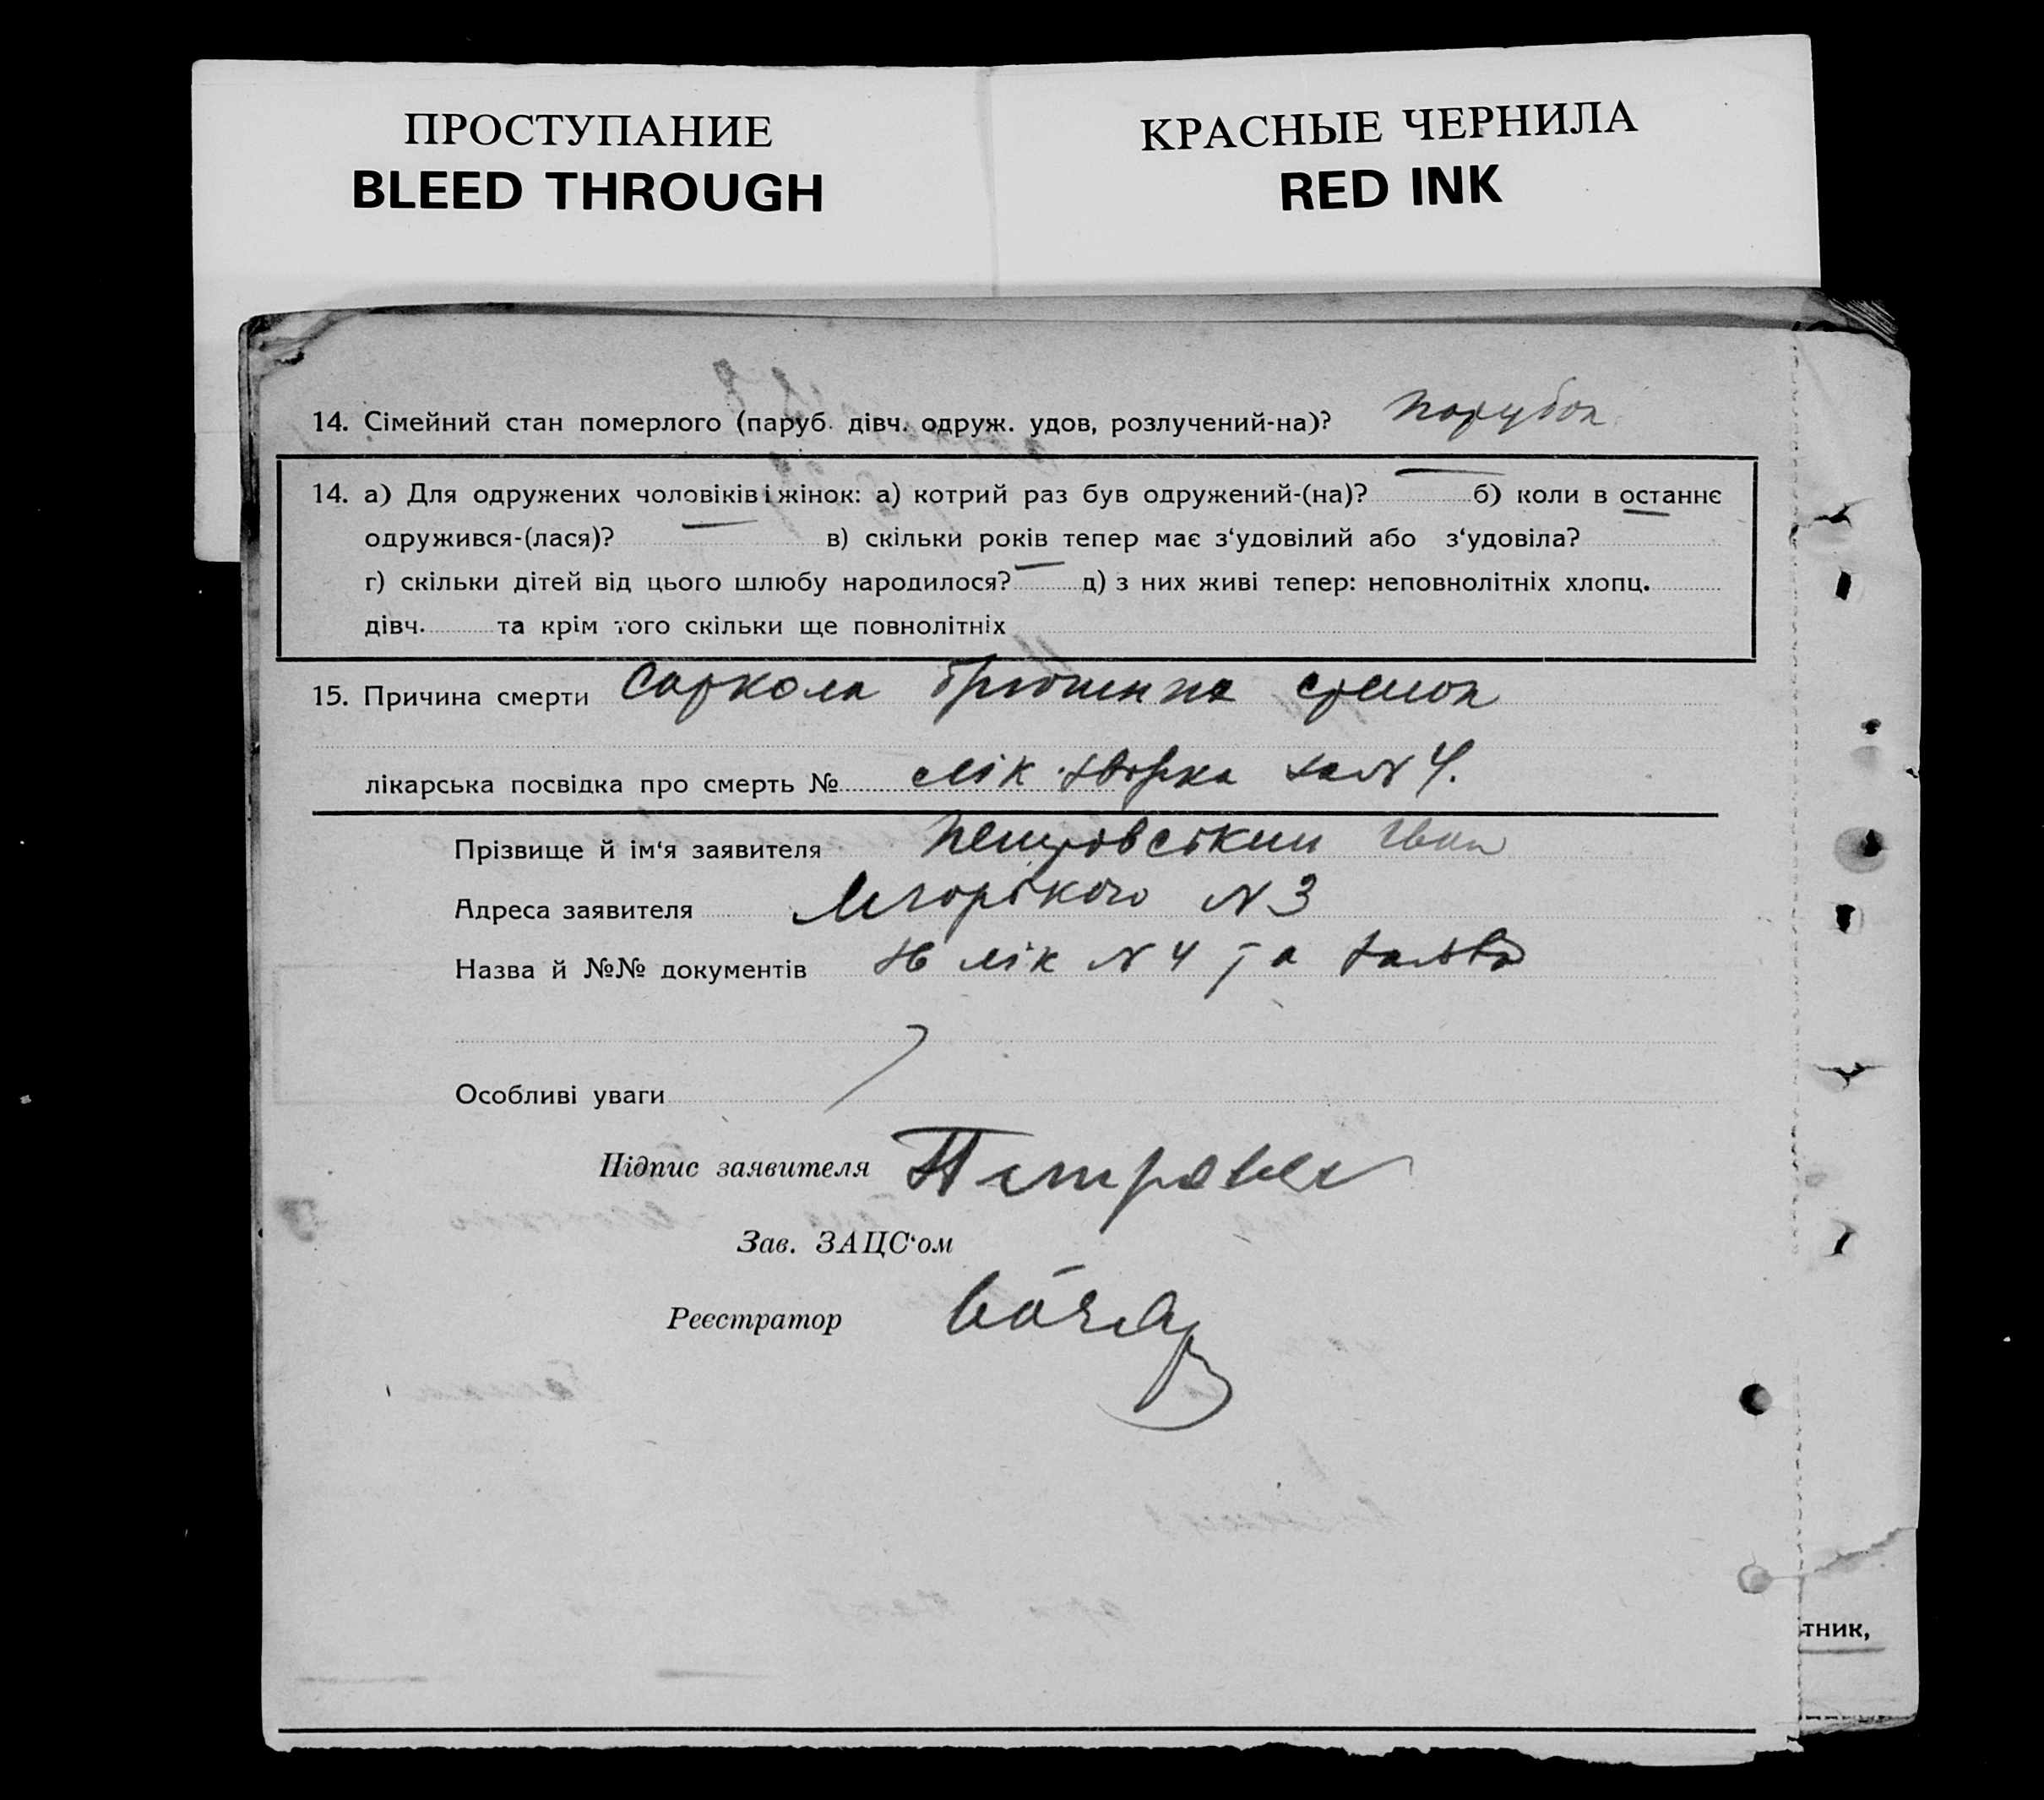 ПРОСТУПАНИЕ
BLEED THROUGH
КРАСНЫЕ ЧЕРНИЛА
RED INK
14. Сімейний стан померлого (паруб. дівч. одруж. удов, розлучений-на)? парубок
14. а) Для одружених чоловіків і жінок: а) котрий раз був одружений-(на)? — б) коли в останнє
одружився-(лася)? — в) скільки років тепер має з‘удовілий або з‘удовіла? —
г) скільки дітей від цього шлюбу народилося? — д) з них живі тепер: неповнолітніх хлопц.
дівч. та крім того скільки ще повнолітніх
15. Причина смерти Саркома
лікарська посвідка про смерть № лік 4.
Прізвище й ім‘я заявителя Петровський Іван
Адреса заявителя Мгорького N 3
Назва й №№ документів лік N 4 та
Особливі уваги
Підпис заявителя
Зав. ЗАЦС‘ом
Реєстратор
тник,